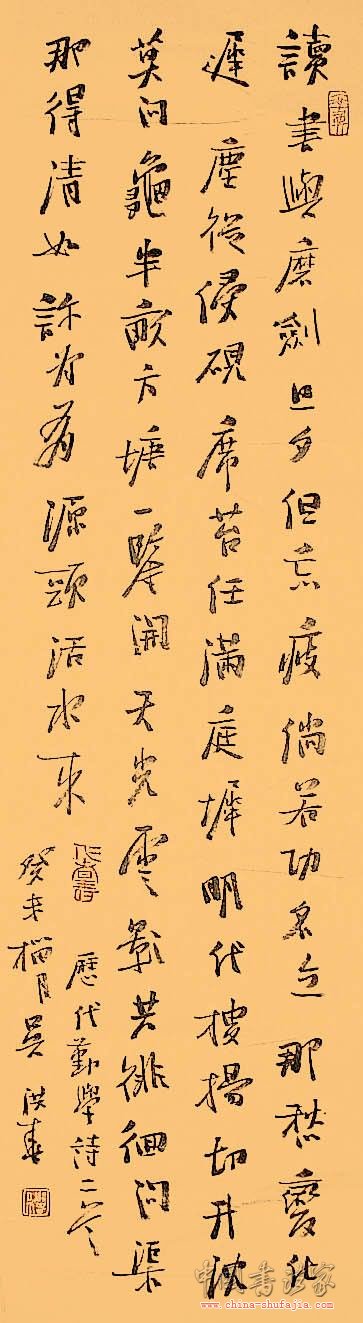 讀書與磨劍旦夕但忘疲倘若功名立那愁變化
遲塵從侵硯席苔任滿庭墀明代搜揚切升沈
莫問龜半畝方塘一鑒開天光雲影共徘徊問渠
那得清如許為有源頭活水來
歷代勤學詩二首
癸未榴月吳洪春
中國書法家
www.china-shufajia.com